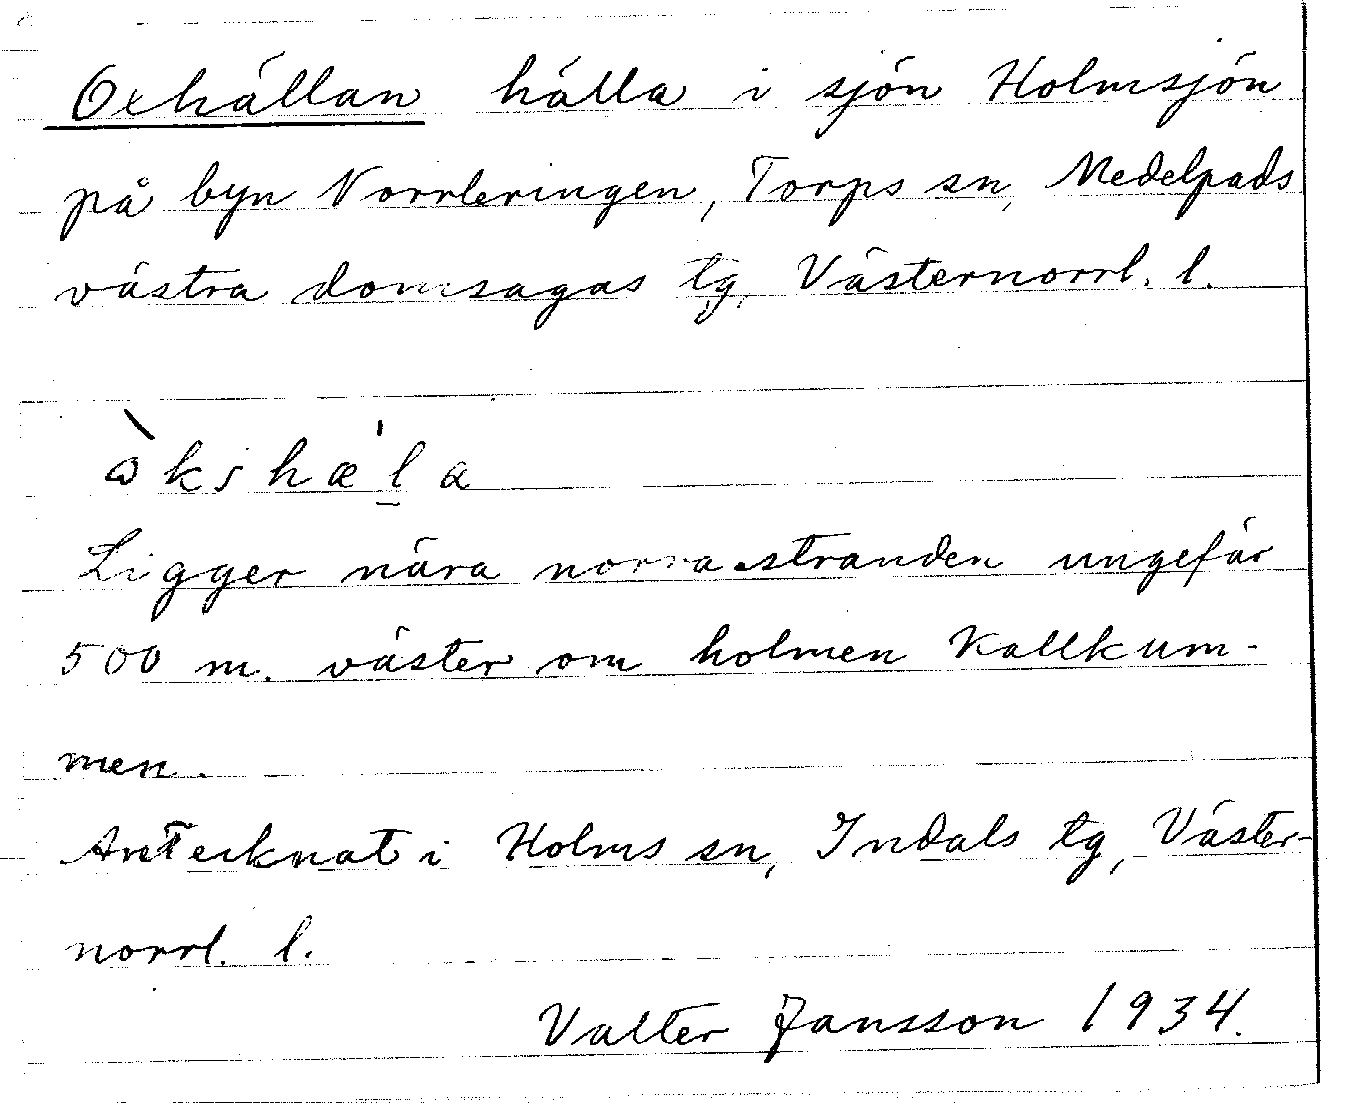 Oxhällan hälla i sjön Holmsjön
på byn Norrleringen, Torps sn, Medelpads
västra domsagas tg, Västernorrl. l.
ὼkshæ̀l̲a
Ligger nära norra stranden ungefär
500 m. väster om holmen Kallkum-
men.
Antecknat i Holms sn, Indals tg, Väster-
norrl. l.
Valter Jansson 1934.